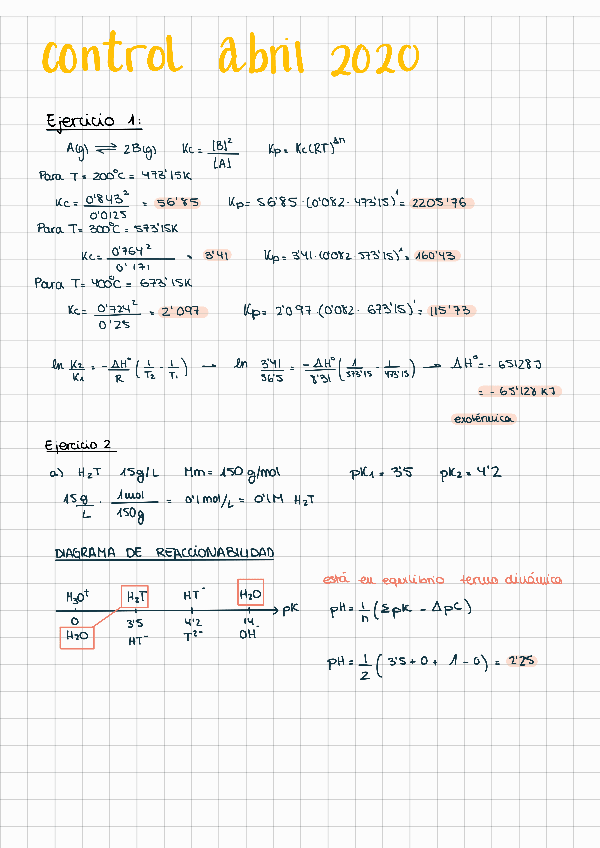 control abril 2020
Ejercicio 1:
A(g) ⇌ 2B(g) Kc = [B]² / [A] Kp = Kc(RT)^Δn
Para T = 200°C = 473'15K
Kc = 0'843² / 0'0125 = 56'85 Kp = 56'85 · (0'082 · 473'15)¹ = 2205'76
Para T = 300°C = 573'15K
Kc = 0'764² / 0'171 = 3'41 Kp = 3'41 · (0'082 · 573'15)¹ = 160'43
Para T = 400°C = 673'15K
Kc = 0'724² / 0'25 = 2'097 Kp = 2'097 · (0'082 · 673'15)¹ = 115'73
ln K2/K1 = -ΔH°/R (1/T2 - 1/T1) → ln 3'41/56'5 = -ΔH°/8'31 (1/573'15 - 1/473'15) → ΔH° = -65128 J
= -65'128 KJ
exotérmica
Ejercicio 2
a) H₂T 15g/L Mm = 150 g/mol pK₁ = 3'5 pK₂ = 4'2
15g/L · 1mol/150g = 0'1mol/L = 0'1M H₂T
DIAGRAMA DE REACCIONABILIDAD
está en equilibrio termodinámico
H₃O⁺ H₂T HT⁻ H₂O
pK
0 3'5 4'2 14
H₂O HT⁻ T²⁻ OH⁻
pH = 1/n (ΣpK - ΔpC)
pH = 1/2 (3'5 + 0 + 1 - 0) = 2'25